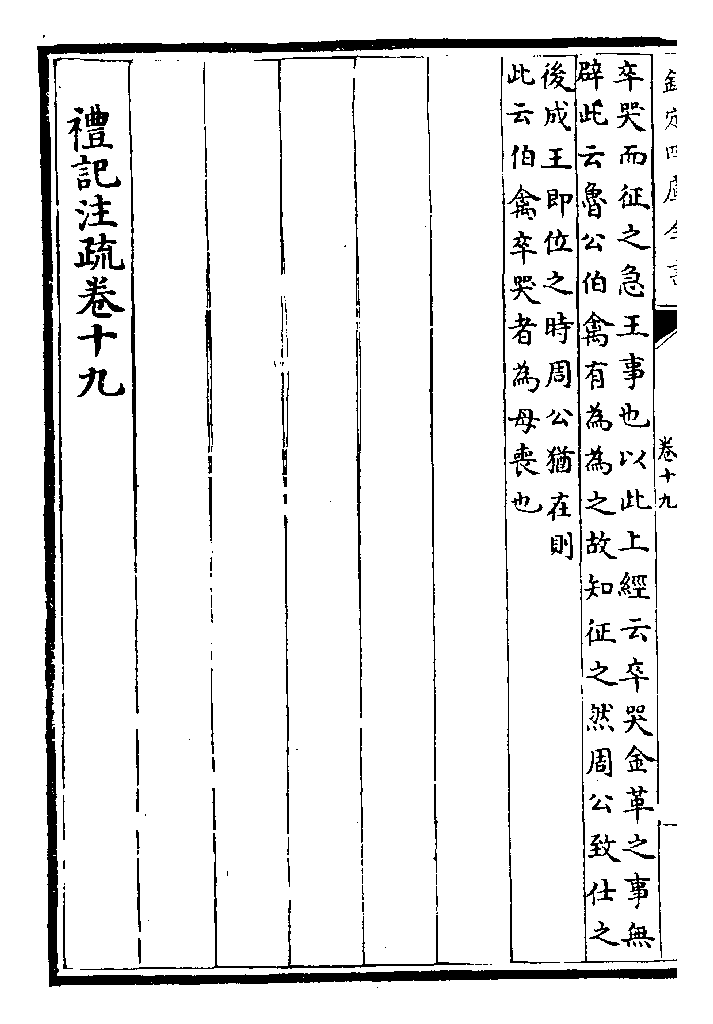 欽定四庫全書
卷十九
卒哭而征之急王事也以此上經云卒哭金革之事無
辟此云魯公伯禽有為為之故知征之然周公致仕之
後成王即位之時周公猶在則
此云伯禽卒哭者為母喪也
禮記注疏卷十九